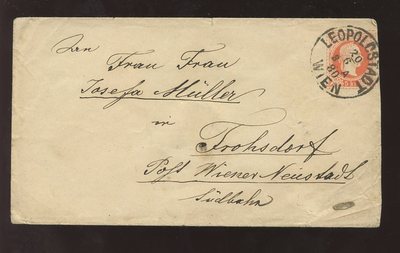 LEOPOLDSTADT
WIEN
20
6
80
An
Frau Frau
Josefa Müller
in
Frohsdorf
Post Wiener Neustadt
Südbahn